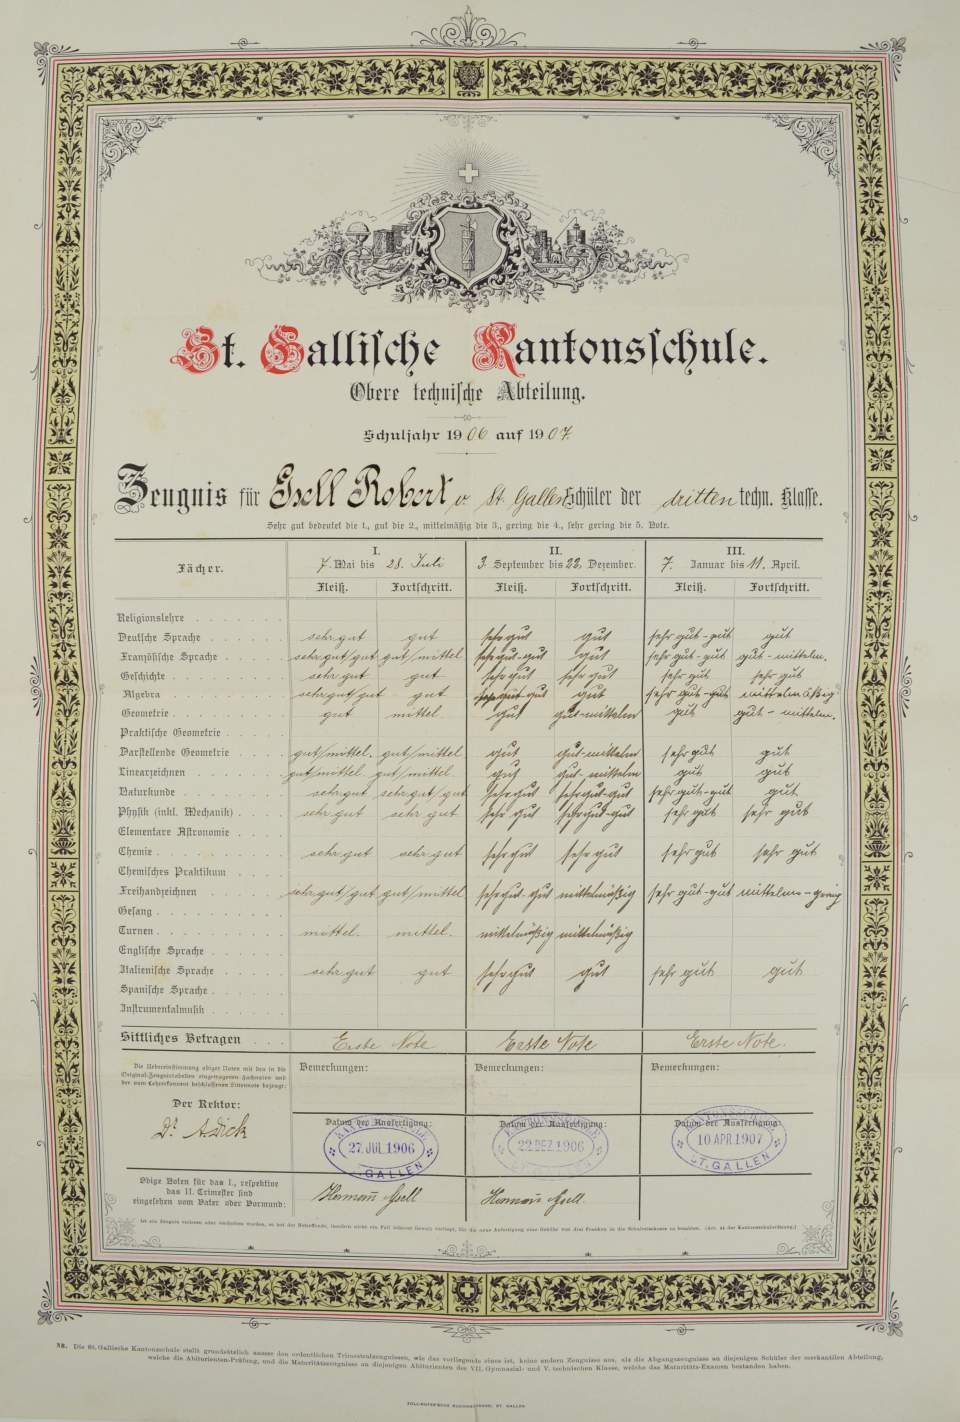 St. Gallische Kantonsschule.
Obere technische Abteilung.
Schuljahr 1906 auf 1907.
Zeugnis für Gsell Robert v. St. Gallen Schüler der dritten techn. Klasse.
Sehr gut bedeutet die 1., gut die 2., mittelmäßig die 3., gering die 4., sehr gering die 5. Note.
Fächer. I. II. III.
7. Mai bis 28. Juli 3. September bis 22. Dezember. 7. Januar bis 11. April.
Fleiß. Fortschritt. Fleiß. Fortschritt. Fleiß. Fortschritt.
Religionslehre
Deutsche Sprache sehr gut gut sehr gut gut sehr gut-gut gut
Französische Sprache sehr gut/gut gut/mittel sehr gut-gut gut sehr gut-gut gut-mittelm.
Geschichte sehr gut gut sehr gut sehr gut sehr gut sehr gut
Algebra sehr gut/gut gut sehr gut-gut gut sehr gut-gut mittelmäßig
Geometrie gut mittel gut gut-mittelm gut gut-mittelm.
Praktische Geometrie
Darstellende Geometrie gut/mittel. gut/mittel gut gut-mittelm sehr gut gut
Linearzeichnen gut/mittel gut/mittel gut gut-mittelm gut gut
Naturkunde sehr gut sehr gut/gut sehr gut sehr gut-gut sehr gut-gut gut
Physik (inkl. Mechanik) sehr gut sehr gut sehr gut sehr gut-gut sehr gut sehr gut
Elementare Astronomie
Chemie sehr gut sehr gut sehr gut sehr gut sehr gut sehr gut
Chemisches Praktikum
Freihandzeichnen sehr gut/gut gut/mittel sehr gut-gut mittelmäßig sehr gut-gut mittelm-gering
Gesang
Turnen mittel. mittel. mittelmäßig mittelmäßig
Englische Sprache
Italienische Sprache sehr gut gut sehr gut gut sehr gut gut
Spanische Sprache
Instrumentalmusik
Sittliches Betragen Erste Note Erste Note Erste Note.
Die Uebereinstimmung obiger Noten mit den in die
Original-Zeugnistabellen eingetragenen Fachnoten und
der vom Lehrerkonvent beschlossenen Sittennote bezeugt:
Bemerkungen: Bemerkungen: Bemerkungen:
Der Rektor:
Dr. A. Dick
Datum der Ausfertigung: Datum der Ausfertigung: Datum der Ausfertigung:
KANTONSSCHULE 27. JUL 1906 ST. GALLEN
KANTONSSCHULE 22 DEZ. 1906 ST. GALLEN
KANTONSSCHULE 10 APR. 1907 ST. GALLEN
Obige Noten für das I., respektive
das II. Trimester sind
eingesehen vom Vater oder Vormund:
Hermann Gsell Hermann Gsell.
Ist ein Zeugnis verloren oder verdorben worden, so hat der Betreffende, insofern nicht ein Fall höherer Gewalt vorliegt, für die neue Anfertigung eine Gebühr von drei Franken in die Schulreisekasse zu bezahlen. (Art. 24 der Kantonsschulordnung.)
NB. Die St. Gallische Kantonsschule stellt grundsätzlich ausser den ordentlichen Trimestralzeugnissen, wie das vorliegende eines ist, keine andern Zeugnisse aus, als die Abgangszeugnisse an diejenigen Schüler der merkantilen Abteilung,
welche die Abiturienten-Prüfung, und die Maturitätszeugnisse an diejenigen Abiturienten des VII. Gymnasial- und V. technischen Klasse, welche das Maturitäts-Examen bestanden haben.
ZOLLIKOFER'SCHE BUCHDRUCKEREI, ST. GALLEN